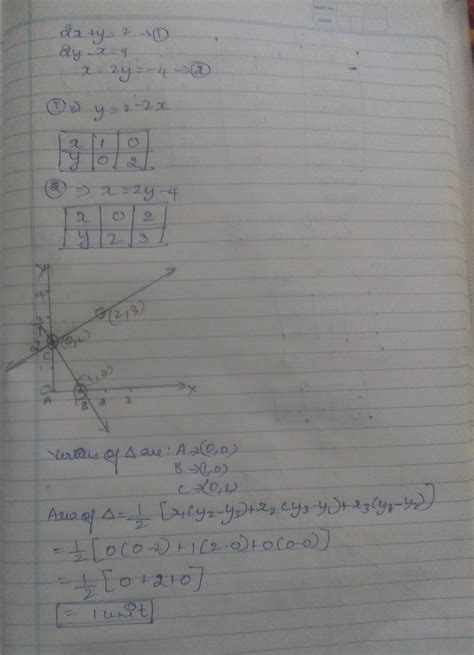 2x+y=2 →①
2y-x=4
x-2y=-4→②
①⇒ y=2-2x
x 1 0
y 0 2
②⇒ x=2y-4
x 0 2
y 2 3
Y
4
3
(2,3)
2
(0,2)
C
(1,0)
0
X
A B 2 3
Vertices of Δ are: A→(0,0)
B→(1,0)
C→(0,2)
Area of Δ=1/2 [x₁(y₂-y₃)+x₂(y₃-y₁)+x₃(y₁-y₂)]
=1/2[0(0-2)+1(2-0)+0(0-0)]
=1/2[0+2+0]
=1unit